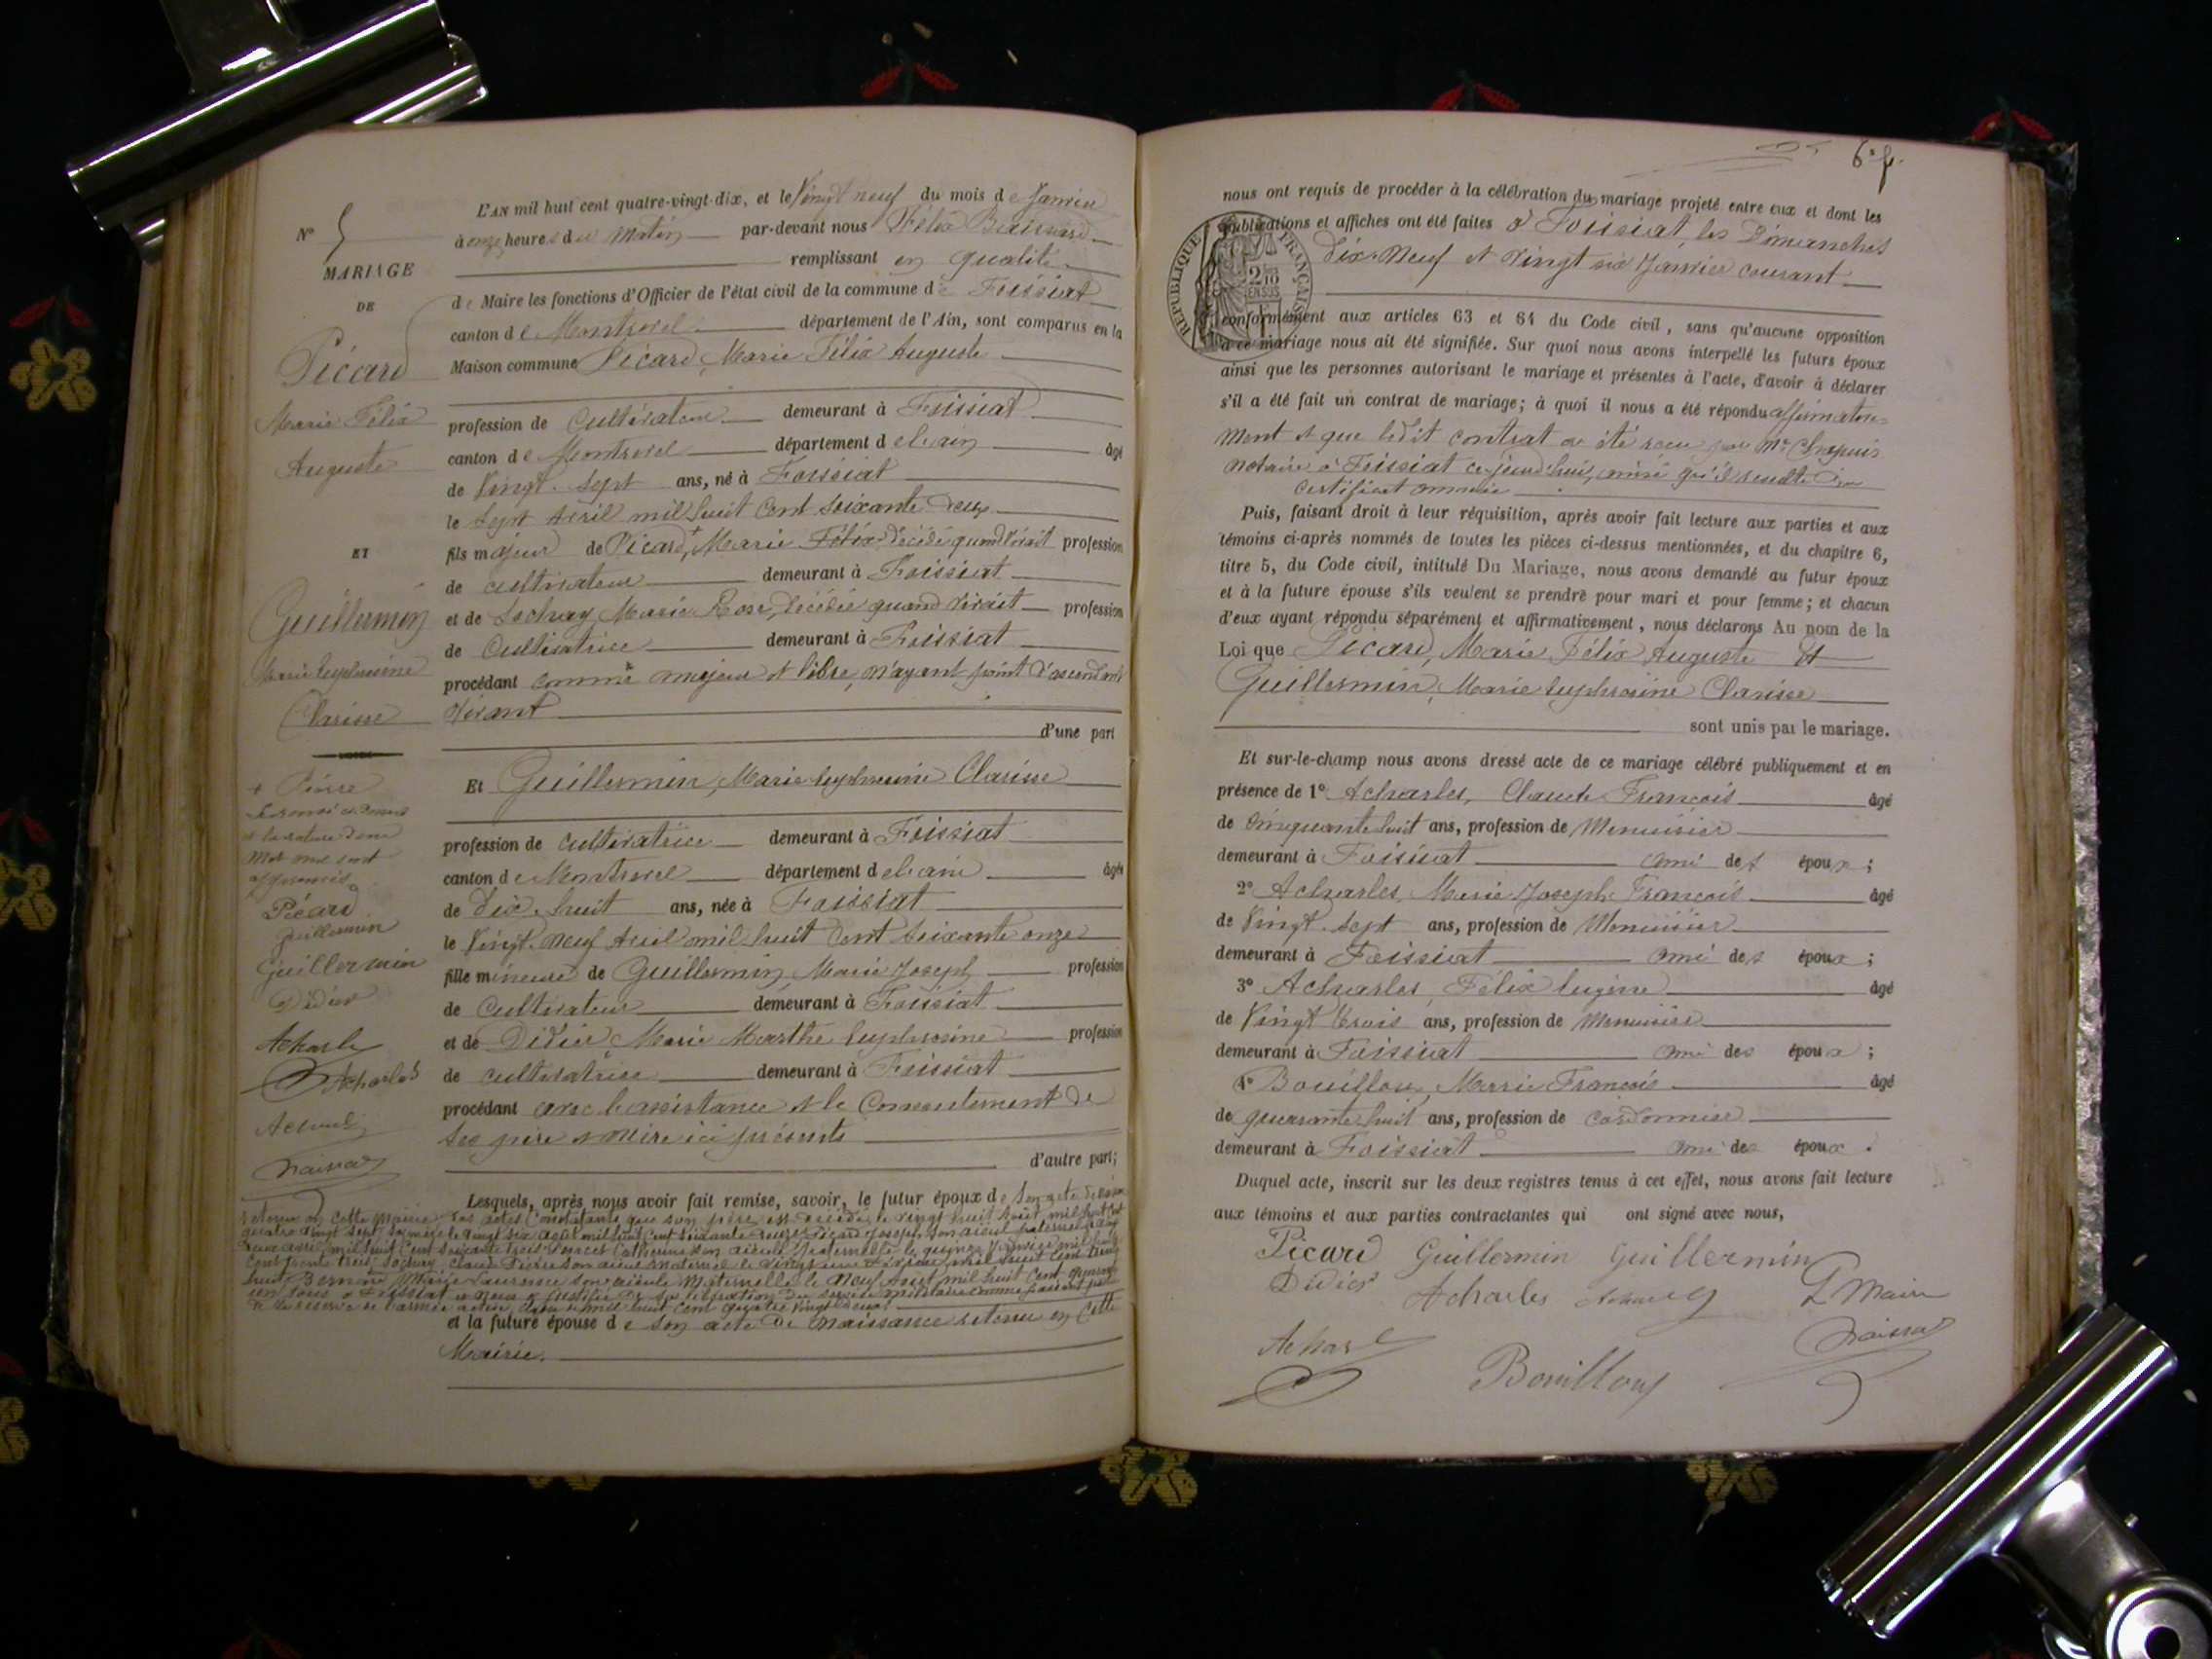 N° 5
MARIAGE
DE
Picard
Marie Félix
Auguste
ET
Guillermin
Marie Euphrosine
Clarisse
+ Pierre
Le renvoi ci-dessus
et la rature d'un
mot nul sont
approuvés
Picard
Guillermin
Guillermin
Didier
Acharles
Acharles
Acharles
L'AN mil huit cent quatre-vingt-dix, et le Vingt neuf du mois de Janvier
à onze heures du Matin par-devant nous Félix
remplissant en qualité
de Maire les fonctions d'Officier de l'état civil de la commune de Foissiat
canton de Montrevel département de l'Ain, sont comparus en la
Maison commune Picard, Marie Félix Auguste
profession de Cultivateur demeurant à Foissiat
canton de Montrevel département de l'ain âgé
de Vingt-Sept ans, né à Foissiat
le Sept Avril mil huit Cent Soixante deux
fils majeur de Picard, + Marie Félix décédé quand vivait profession
de cultivateur demeurant à Foissiat
et de Sochay Marie Rose, décédée quand vivait profession
de Cultivatrice demeurant à Foissiat
procédant comme majeur et libre, n'ayant point d'ascendant
Vivant
d'une part
Et Guillermin, Marie Euphrosine Clarisse
profession de cultivatrice demeurant à Foissiat
canton de Montrevel département de l'ain âgée
de dix-huit ans, née à Foissiat
le Vingt-neuf Avril mil huit Cent Soixante onze
fille mineure de Guillermin, Marie Joseph profession
de Cultivateur demeurant à Foissiat
et de Didier Marie Marthe Euphrosine profession
de cultivatrice demeurant à Foissiat
procédant avec l'assistance et le Consentement de
ses père et mère ici présents
d'autre part;
Lesquels, après nous avoir fait remise, savoir, le futur époux de son acte de naissance
retenu en cette Mairie, des actes Constatants que son père est décédé le vingt huit Août mil huit Cent
quatre vingt sept, sa mère le vingt six Août mil huit Cent Soixante Picard Joseph, son aieul paternel le
mil huit Cent Soixante trois Catherine son aieule paternelle le quinze mil huit
Cent trente trois, Sochay, Claude Pierre son aieul maternel le vingt mil huit Cent trente
huit, Marie Laurence son aieule Maternelle le neuf Août mil huit Cent quarante
un tous à Foissiat et nous a justifié de sa libération du service militaire comme passant
de la réserve de l'armée active mil huit Cent quatre vingt
et la future épouse de son acte de naissance retenu en Cette
Mairie.
6e f.
nous ont requis de procéder à la célébration du mariage projeté entre eux et dont les
publications et affiches ont été faites à Foissiat, les Dimanches
dix-neuf et vingt six Janvier courant
RÉPUBLIQUE FRANÇAISE
2/10
EN SUS
conformément aux articles 63 et 64 du Code civil, sans qu'aucune opposition
à ce mariage nous ait été signifiée. Sur quoi nous avons interpellé les futurs époux
ainsi que les personnes autorisant le mariage et présentes à l'acte, d'avoir à déclarer
s'il a été fait un contrat de mariage; à quoi il nous a été répondu affirmative-
ment et que ledit contrat a été reçu par Me Chapuis
notaire à Foissiat ce jourd'hui, ainsi qu'il résulte d'un
certificat annexé
Puis, faisant droit à leur réquisition, après avoir fait lecture aux parties et aux
témoins ci-après nommés de toutes les pièces ci-dessus mentionnées, et du chapitre 6,
titre 5, du Code civil, intitulé Du Mariage, nous avons demandé au futur époux
et à la future épouse s'ils veulent se prendre pour mari et pour femme; et chacun
d'eux ayant répondu séparément et affirmativement, nous déclarons Au nom de la
Loi que Picard, Marie Félix Auguste Et
Guillermin, Marie Euphrosine Clarisse
sont unis par le mariage.
Et sur-le-champ nous avons dressé acte de ce mariage célébré publiquement et en
présence de 1° Acharles, Claude François âgé
de Cinquante huit ans, profession de Menuisier
demeurant à Foissiat ami des époux;
2° Acharles, Marie Joseph François âgé
de Vingt-Sept ans, profession de Menuisier
demeurant à Foissiat ami des époux;
3° Acharles, Félix Eugène âgé
de Vingt trois ans, profession de Menuisier
demeurant à Foissiat ami des époux;
4° Bouilloux, Marie François âgé
de quarante huit ans, profession de cordonnier
demeurant à Foissiat ami des époux.
Duquel acte, inscrit sur les deux registres tenus à cet effet, nous avons fait lecture
aux témoins et aux parties contractantes qui ont signé avec nous,
Picard Guillermin Guillermin
Didier Acharles Le Maire
Bouilloux